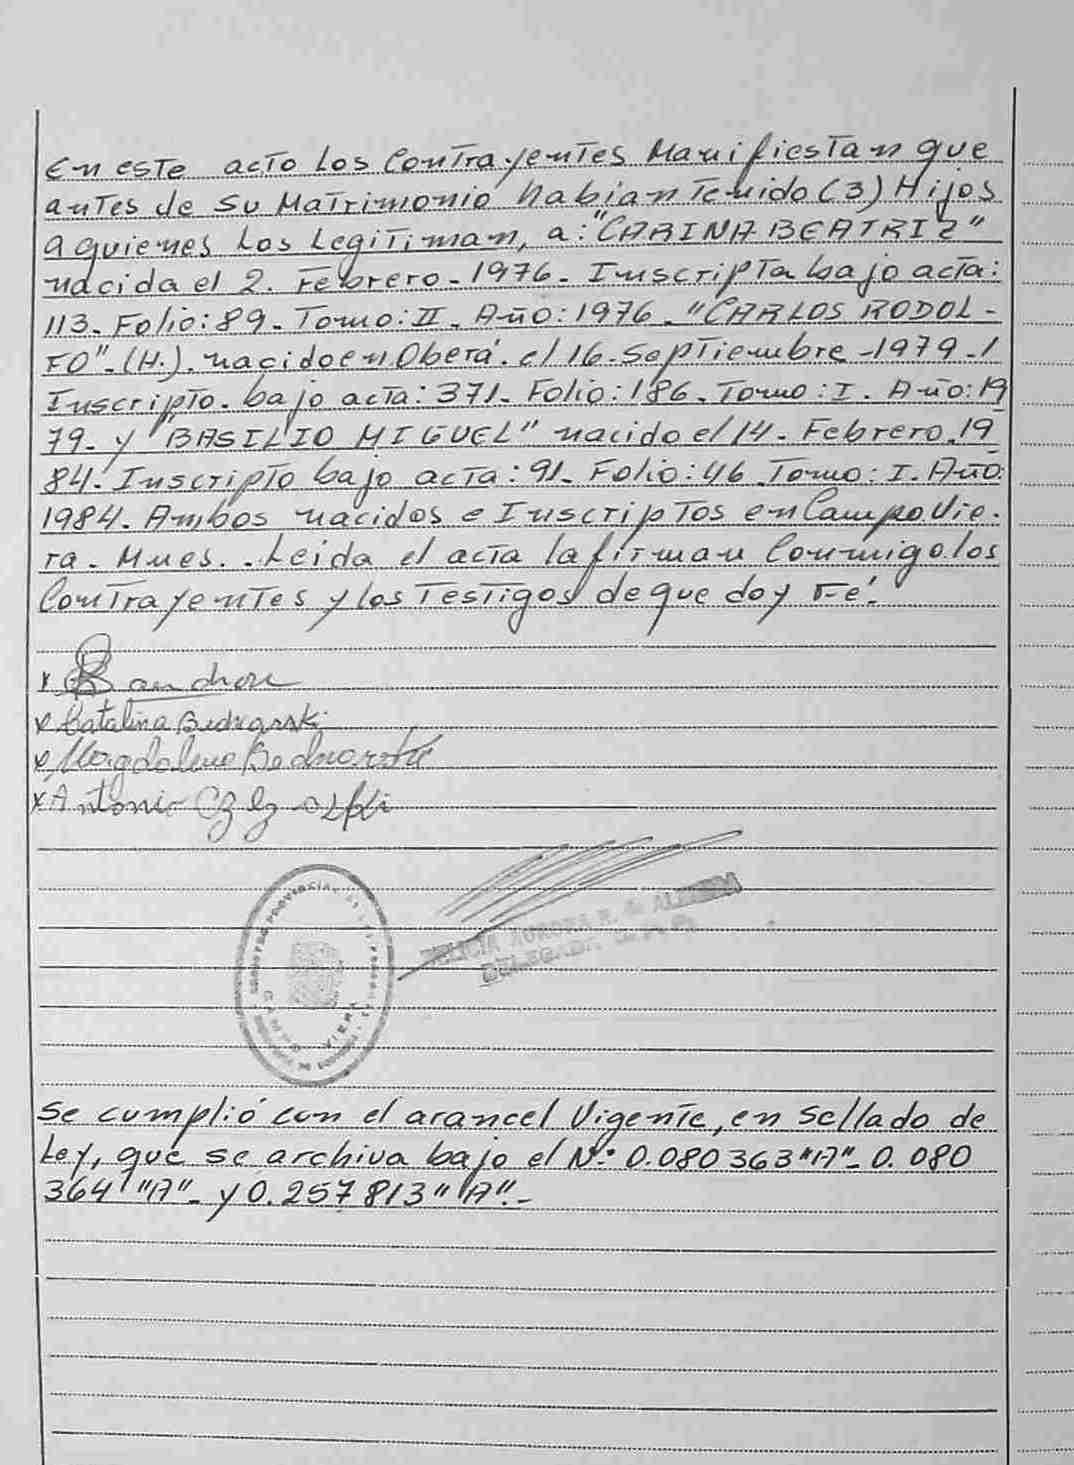 en este acto los Contrayentes Manifiestan que
antes de su Matrimonio habian Tenido (3) Hijos
a quienes Los Legitiman, a: "CARINA BEATRIZ"
nacida el 2. Febrero - 1976 - Inscripta bajo acta:
113. Folio: 89 - Tomo: II. Año: 1976. "CARLOS RODOL-
FO" - (H.). nacido en Oberá. el 16. Septiembre - 1979 -
Inscripto. bajo acta: 371. Folio: 186. Tomo: I. Año: 19
79 - y "BASILIO MIGUEL" nacido el 14. Febrero. 19
84. Inscripto bajo acta: 91. Folio: 46. Tomo: I. Año:
1984. Ambos nacidos e Inscriptos en Campo Vie-
ra. Mnes. . Leida el acta la firman Conmigo los
Contrayentes y los Testigos de que doy Fé.
x
x Catalina Bednarski
x Magdalena Bednarski
x Antonio
REGISTRO PROVINCIAL DE LAS PERSONAS
CAMPO VIERA
AURORA
DELEGADA
Se cumplió con el arancel Vigente, en Sellado de
Ley, que se archiva bajo el N.º 0.080 363 "A" - 0.080
364 "A" - y 0.257 813 "A". -